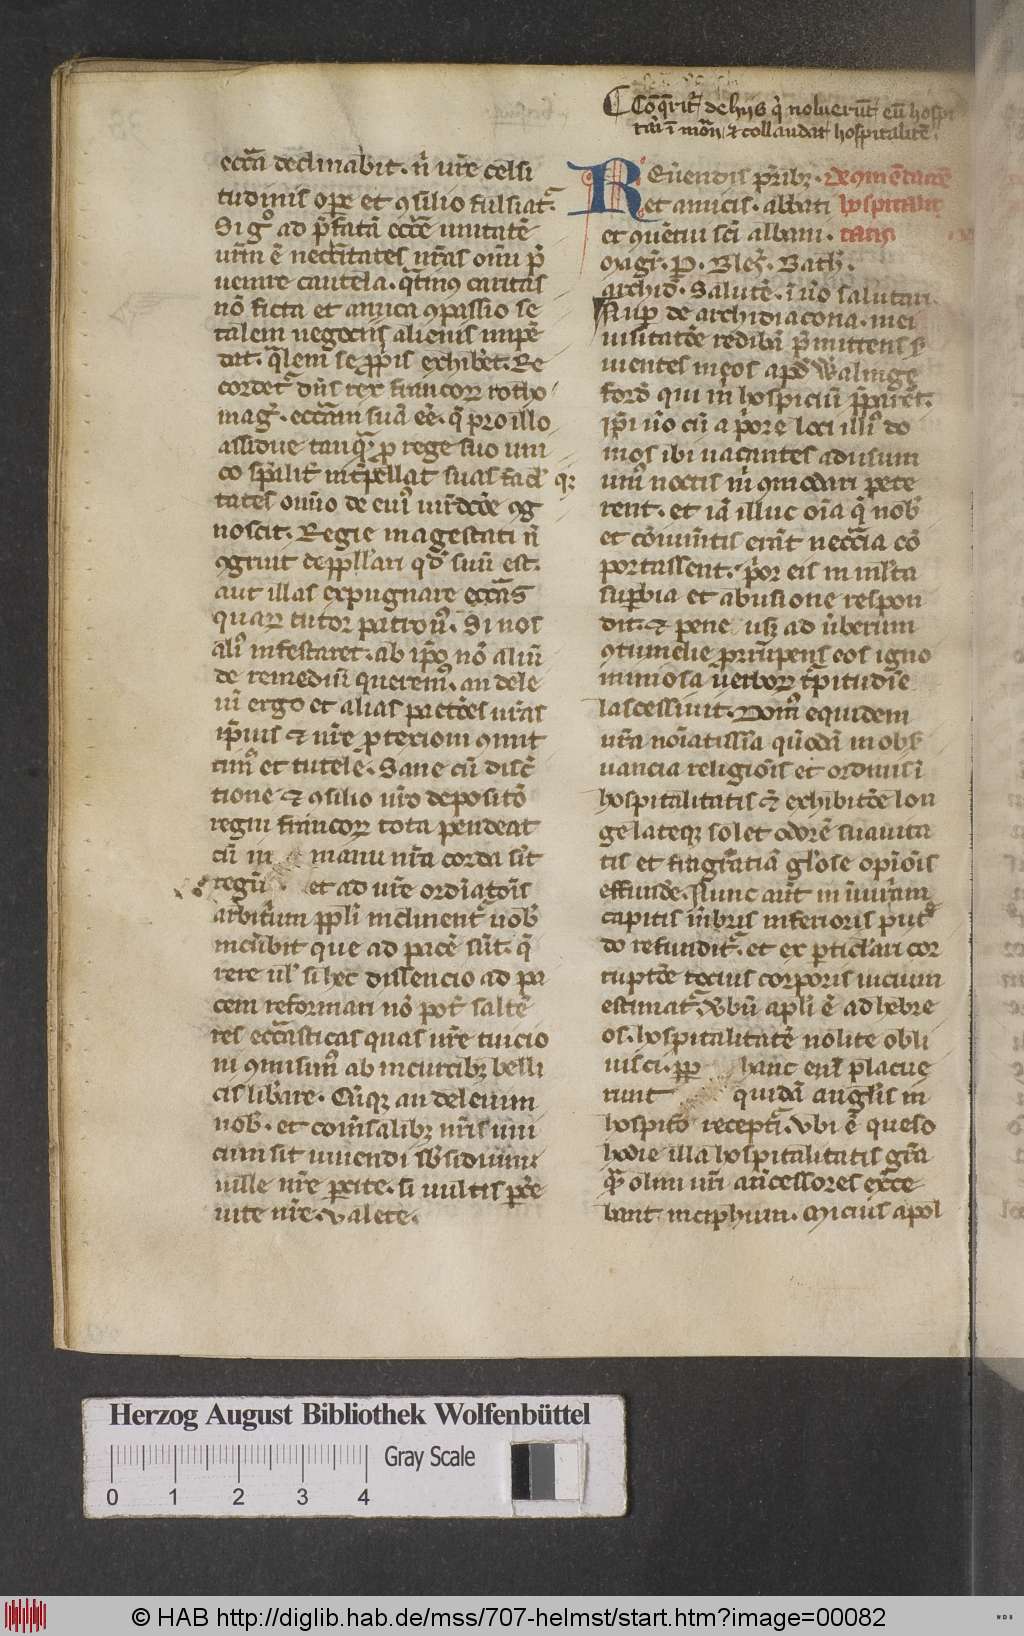 ecc̄a declinabit. n̄ ur̄e celsi
tudinis ope et ꝯsilio fulciat᷑.
Si gͦ ad p̄fatā ecc̄e unitatē
ur̄m ē necc̄itates ur̄as om̄i p̄
uenire cautela. qͣtinus caritas
nō ficta et amica ꝯpassio se
talem negociis alienis impē
dat. qͣlem se ꝓpriis exhibet. Re
cordet᷑ dn̄s rex francorꝝ rotho
maḡ. ecc̄am suā eē. q̄ pro illo
assidue tanqͣꝫ ꝓ rege suo uni
co sp̄alit̄ int̄pellat suas facl̄
tates om̄io de cui᷒
noscit. Regie magestati n̄
ꝯgruit depp̄llari qd̄ suū est.
aut illas expugnare ecc̄as
quarꝝ tutor patronꝰ. Si nos
aliꝰ infestaret. ab ip̄o nō aliū
de remediū querem᷒. an dele
ui ergo et alias ptēs ur̄as
ip̄ius et ur̄e ꝓtexioni ꝯmit
timꝰ et tutele. Sane cū discͥ
tione et ꝯsilio ur̄o depositō
regni francorꝝ tota pendeat
cū in manu ur̄a corda sīt
regū et ad ur̄e ordīatōis
arbitͥum pp̄li inclinent᷑ uob᷒
incūbit que ad pacē sūt. q̄
rere ul̓ si hec dissencio ad pa
cem reformari nō pot̄ saltē
res ecc̄asticas quas ur̄e tuicio
ni ꝯmisimꝰ ab incurcibꝫ belli
cis lib̄are. Cūqꝫ an deleuim
nob̓. et com̄salibꝫ nr̄is uni
cum sit uiuendi sb̓sidium
uille ur̄e ꝑcite. si uultis ꝑce
uite ur̄e. Valete.
Coq̄rit᷑ de hiis qͥ noluerūt eū hospi
tari ī mōn̄ et collaudat hospitalitē.
REūendis pr̄ibꝫ. De ꝯmētacōe
et amicis. abbati hospitali
et ꝯuētui sc̄i albani. tatis
Magr̄. P. Bles̄. Bath̄.
archid̄. Salutē. ī uō salutari
Nup̄ de archidiaconā. mei
uisitatōe redibā p̄mittens s̓
uientes meos apd̓ Walinge
ford̄ qui in̄ hospiciū p̄pararēt.
Ip̄i ūo cū a pͥore loci illi᷒ do
mos ibi uacantes ad usum
uni᷒ noctis in̄ ꝯmodari pete
rent. et iā illuc oīa q̄ nob̓
et com̄unitis erāt necc̄ia cō
portassent. pͥor eis in multa
suꝑbia et abusione respon
dit. et pene usqꝫ ad ūberum
ꝯtumelie ꝓrrūpens eos igno
miniosa ūerborꝝ tᷓpitudīe
lascessiuit. Domꝰ equidem
ur̄a noīatissīa qūdā in obs̓
uancia religiōis et ordinis ī
hospitalitatis exhibitōe lon
ge lateqꝫ solet odorē suauita
tis et fragrātiā gl̓ose opiōis
effunde. Nunc aūt in iniuriam
capitis mēbris inferioris put̓
do refundit᷑. et ex ꝑticl̓ari cor
ruptōe tocius corporis uicium
estimat᷑. Vb̓ū apl̓i ē ad hebre
os. hospitalitatē nolite obli
uisci. ꝑp̄ hanc eni placue
runt quidā anglis in
hospitō receptꝭ. Vbi ē queso
hodie illa hospitalitatis gr̄a
qͣꝫ olim ur̄i ātecessores exēce
bant. in cipͥhum. Micius apol
Herzog August Bibliothek Wolfenbüttel
Gray Scale
0 1 2 3 4
© HAB http://diglib.hab.de/mss/707-helmst/start.htm?image=00082